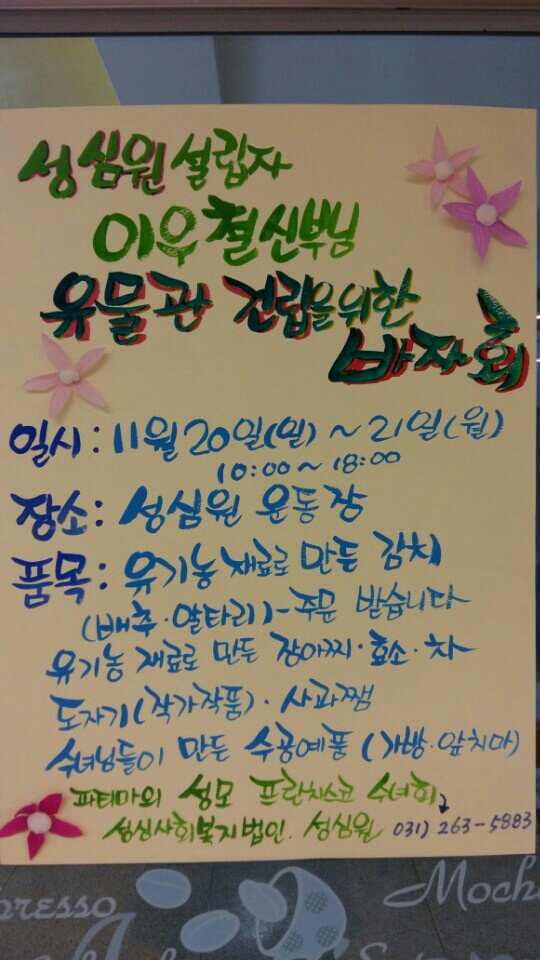 성심원 설립자
이우철신부님
유물관 건립을위한
바자회
일시: 11월 20일(일) ~ 21일(월)
10:00 ~ 18:00
장소: 성심원 운동장
품목: 유기농재료로 만든 김치
(배추·알타리)-주문 받습니다
유기농 재료로 만든 장아찌·효소·차
도자기(작가작품)·사과쨈
수녀님들이 만든 수공예품 (가방·앞치마)
파티마의 성모 프란치스코 수녀회
성심사회복지법인. 성심원 031) 263-5883
presso
Moch